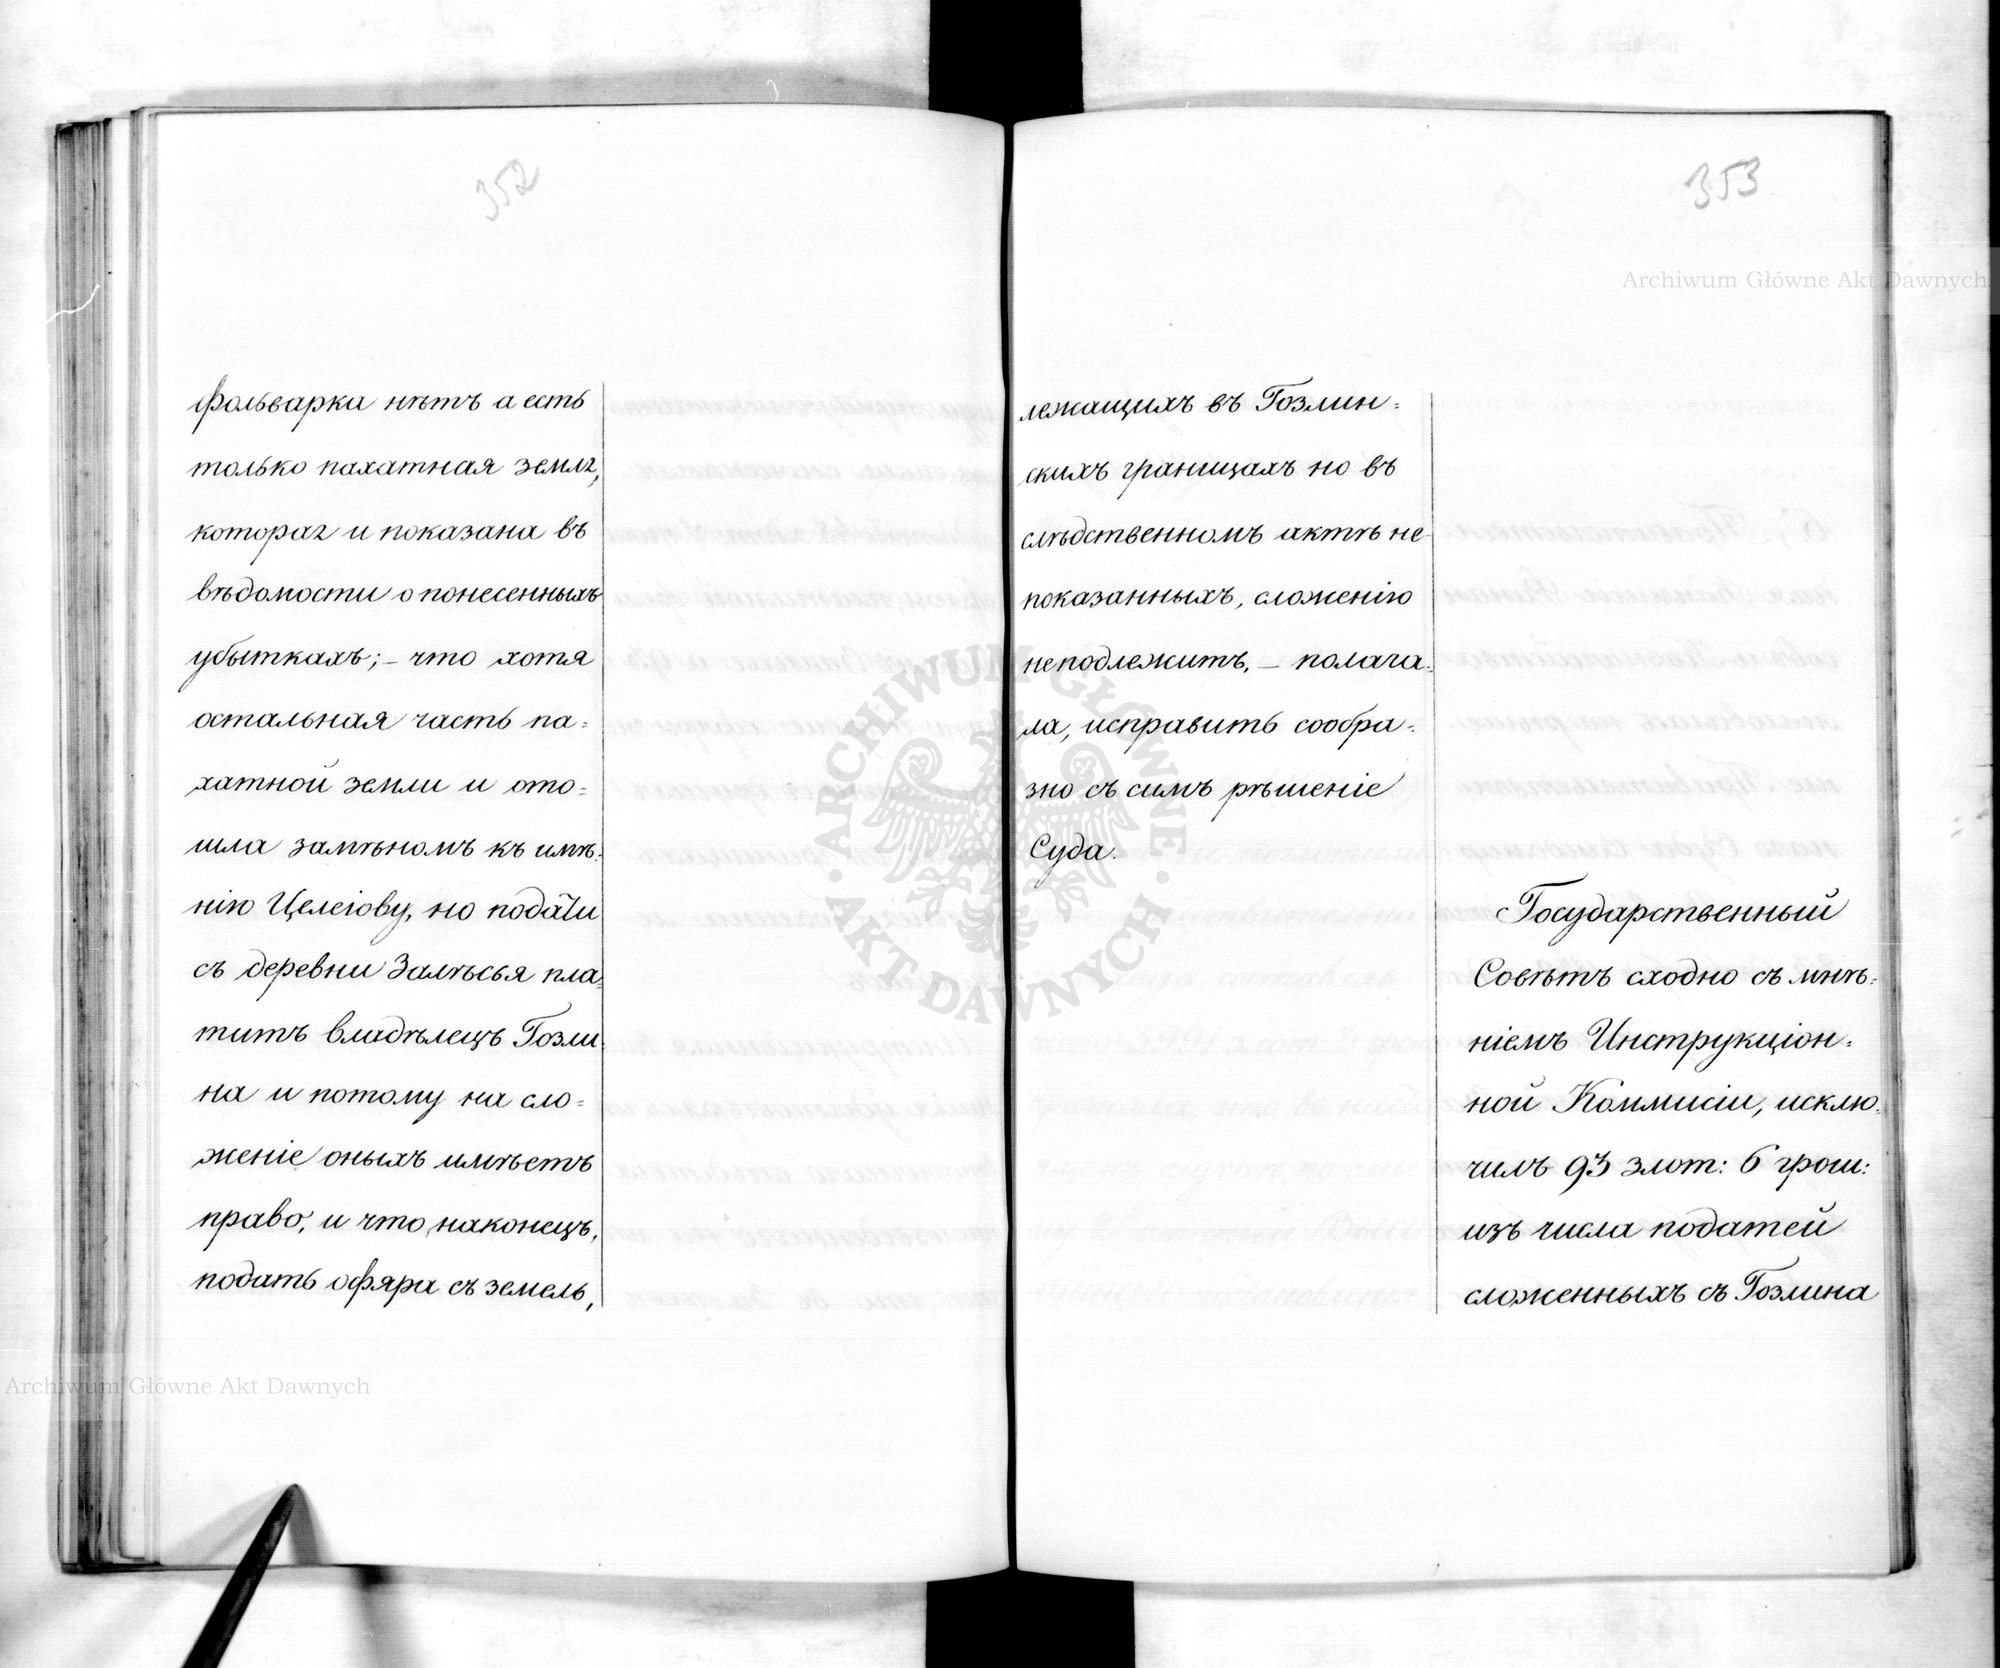 352
фольварка нѣтъ а есть
только пахатная земля,
которая и показана въ
вѣдомости о понесенныхъ
убыткахъ; – что хотя
остальная часть па=
хатной земли и ото=
шла замѣномъ къ имѣ=
нію Целегову, но подати
съ деревни Залѣсья пла=
титъ владѣлецъ Гозли
на и потому на сло=
женіе оныхъ имѣетъ
право, и что наконецъ,
подать офяра съ земель,
353
лежащихъ въ Гозлин=
скихъ границахъ но въ
слѣдственномъ актѣ не
показанныхъ, сложенію
неподлежитъ, – полага=
ла, исправить сообра=
зно съ симъ рѣшеніе
Суда.
Государственный
Совѣтъ сходно съ мнѣ=
ніемъ Инструкціон=
ной Коммисіи, исклю=
чилъ 93 злот: 6 грош:
изъ числа податей
сложенныхъ съ Гозлина
ARCHIWUM GŁÓWNE · AKT DAWNYCH ·
Archiwum Główne Akt Dawnych
Archiwum Główne Akt Dawnych